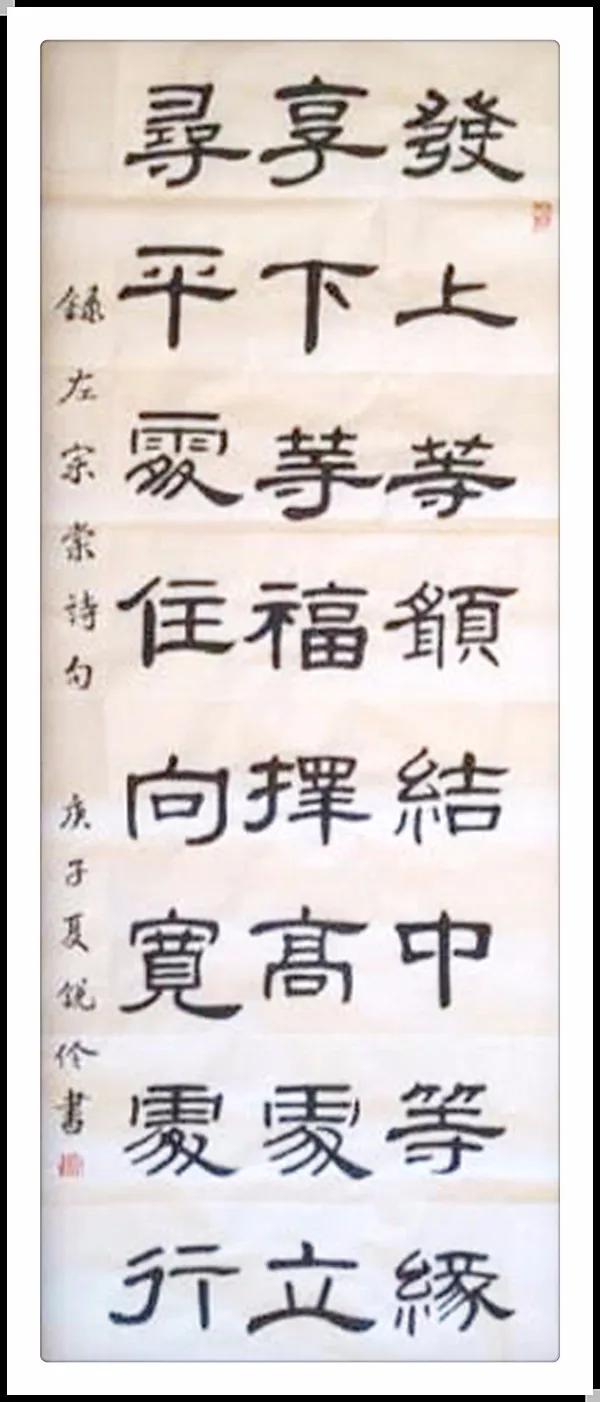 發上等願結中等緣
享下等福擇高處立
尋平處住向寬處行
録左宗棠詩句 庚子夏鋭伶書